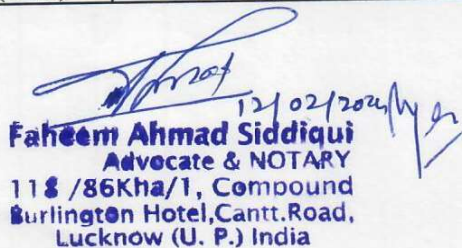 Faheem Ahmad Siddiqui
Advocate & NOTARY
118 /86Kha/1, Compound
Burlington Hotel,Cantt.Road,
Lucknow (U. P.) India